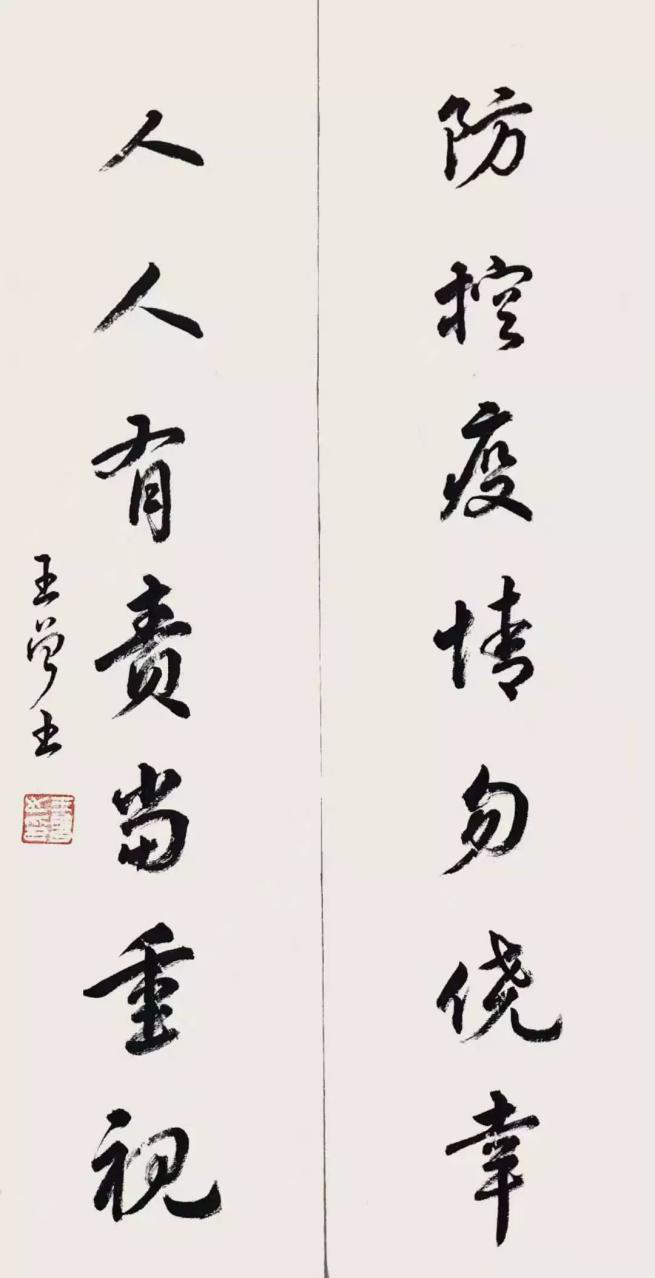 防控疫情勿侥幸
人人有责當重视
王